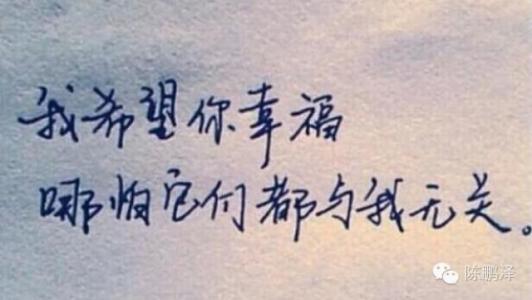 我希望你幸福
哪怕它们都与我无关。
陈鹏泽